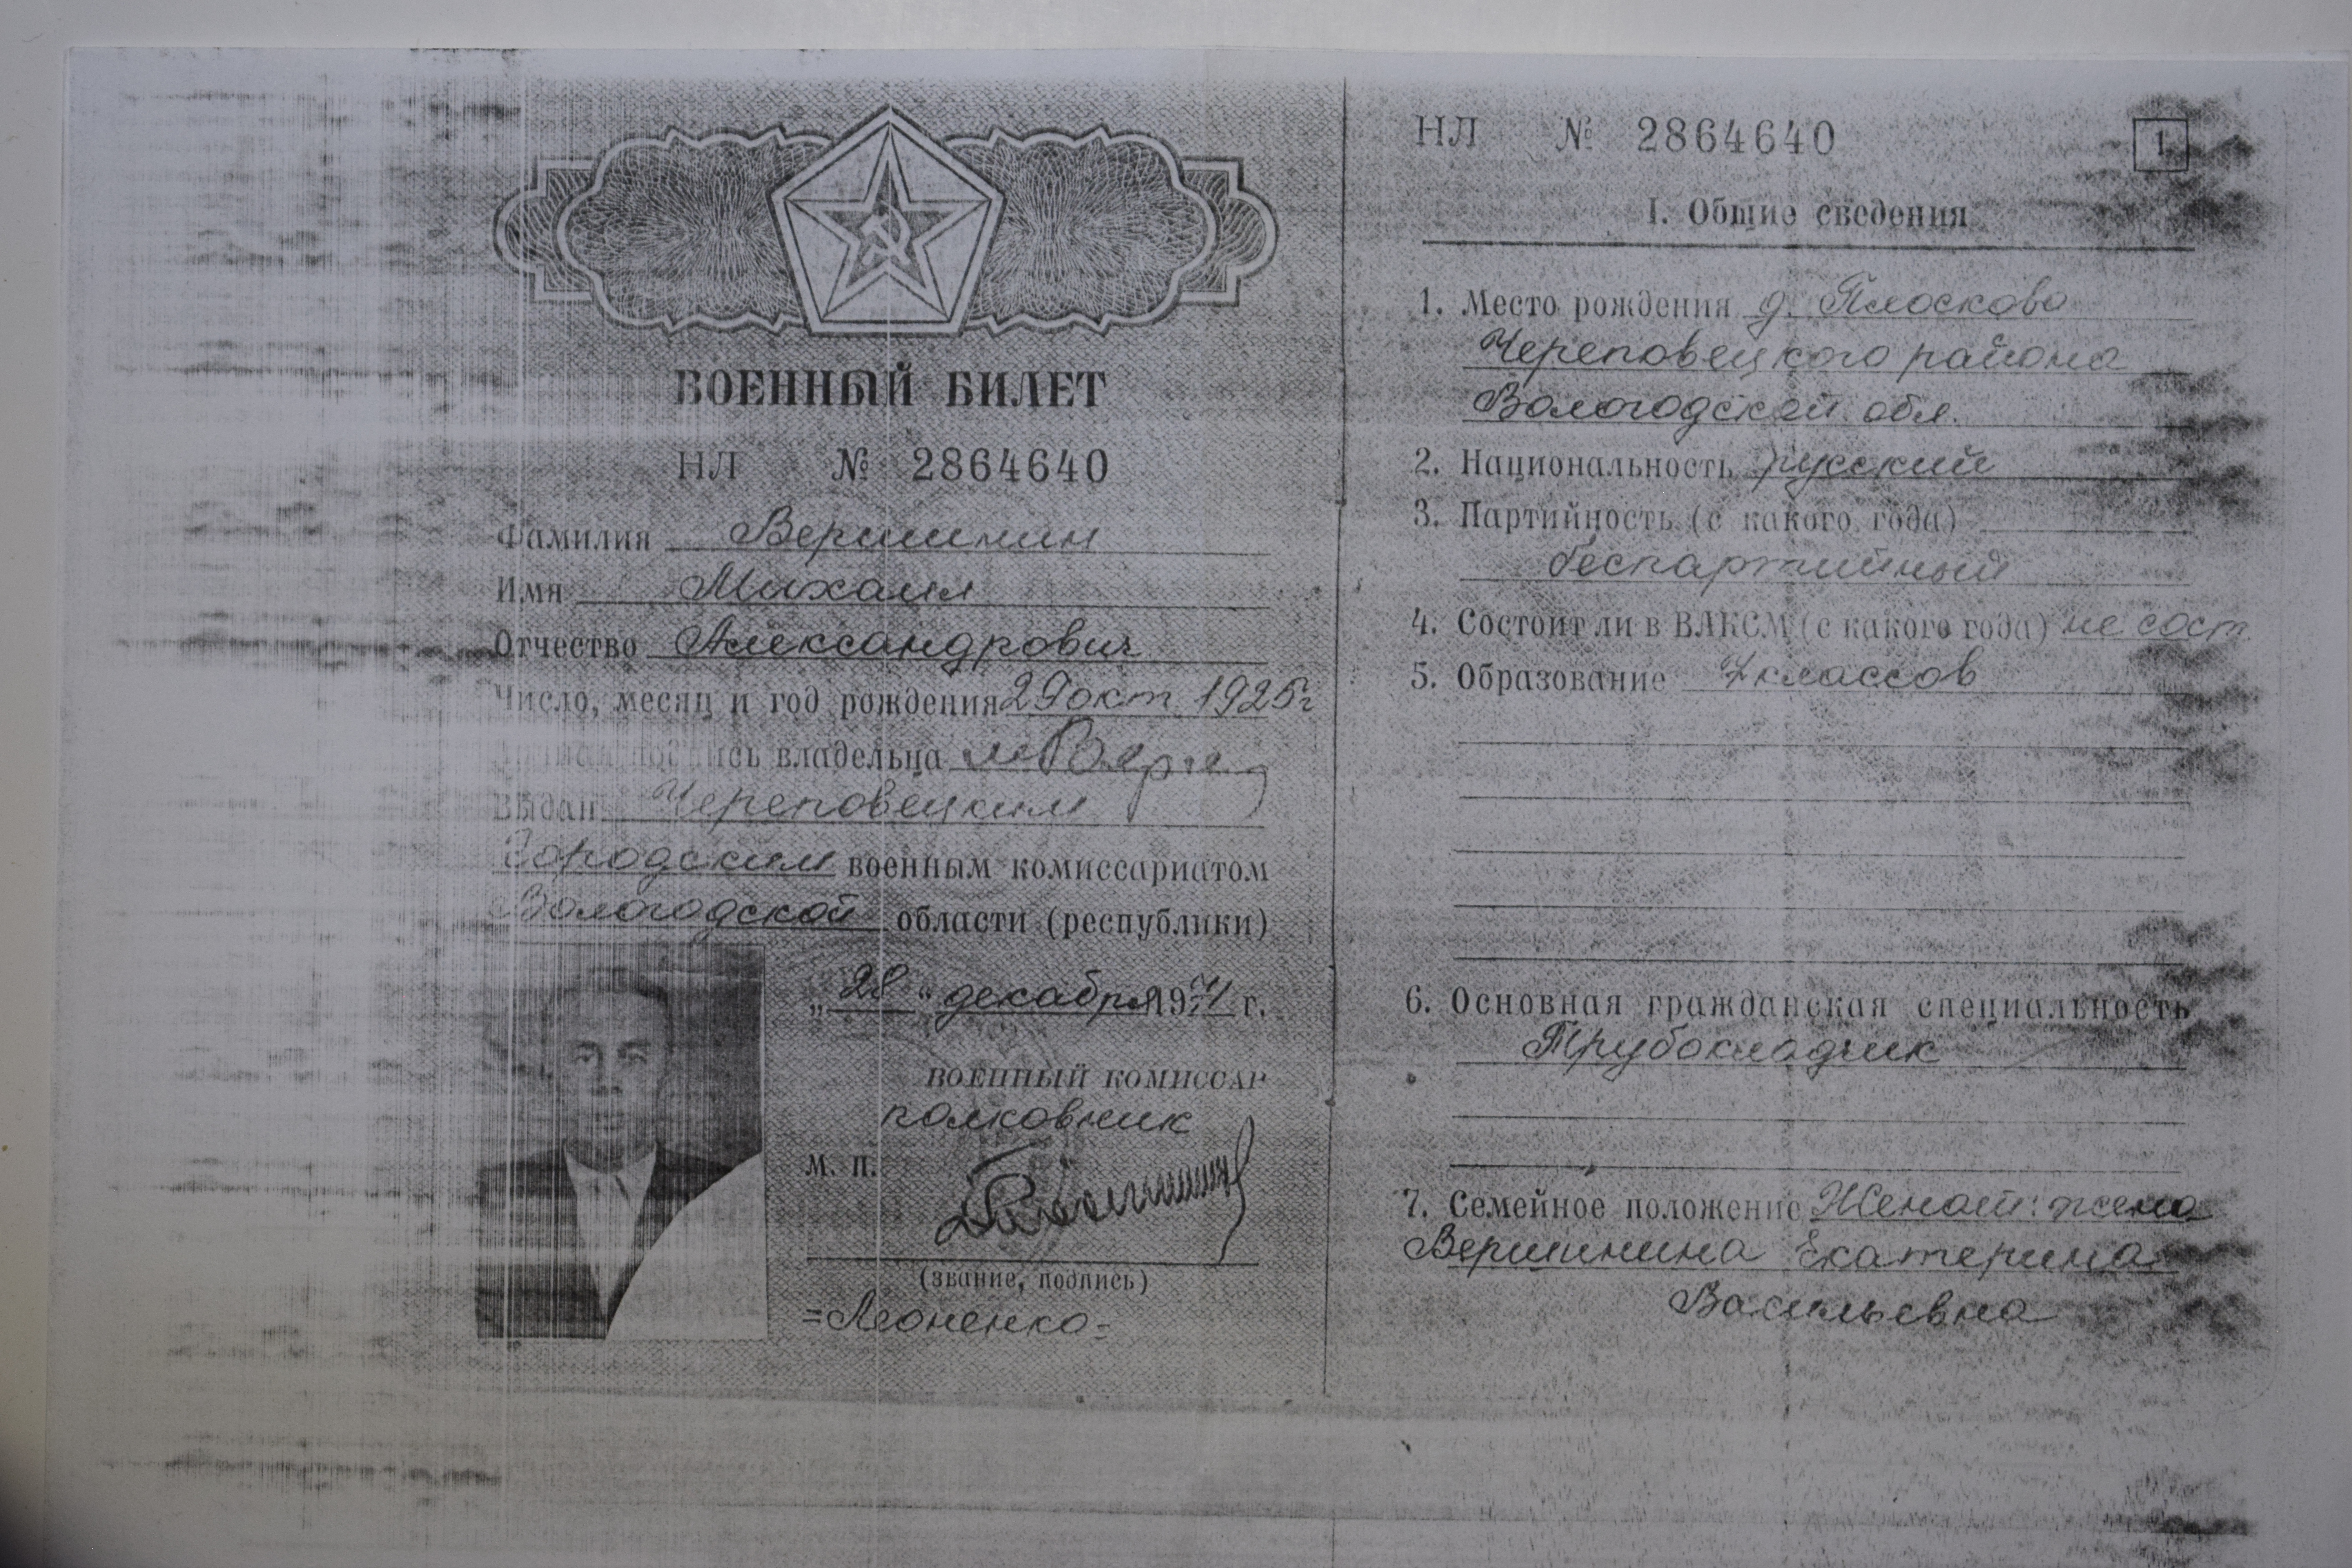 ВОЕННЫЙ БИЛЕТ
НЛ № 2864640
Фамилия Вершинин
Имя Михаил
Отчество Александрович
Число, месяц и год рождения 29 окт 1925г
Личная подпись владельца
Выдан Череповецким
Городским военным комиссариатом
Вологодской области (республики)
„28“ декабря 1974 г.
ВОЕННЫЙ КОМИССАР
полковник
М. П.
(звание, подпись)
=Леоненко=
НЛ № 2864640
1
I. Общие сведения
1. Место рождения д. Плосково
Череповецкого района
Вологодской обл.
2. Национальность русский
3. Партийность (с какого года)
беспартийный
4. Состоит ли в ВЛКСМ (с какого года) не сост.
5. Образование 7 классов
6. Основная гражданская специальность
Трубокладчик
7. Семейное положение Женат: жена
Вершинина Екатерина
Васильевна